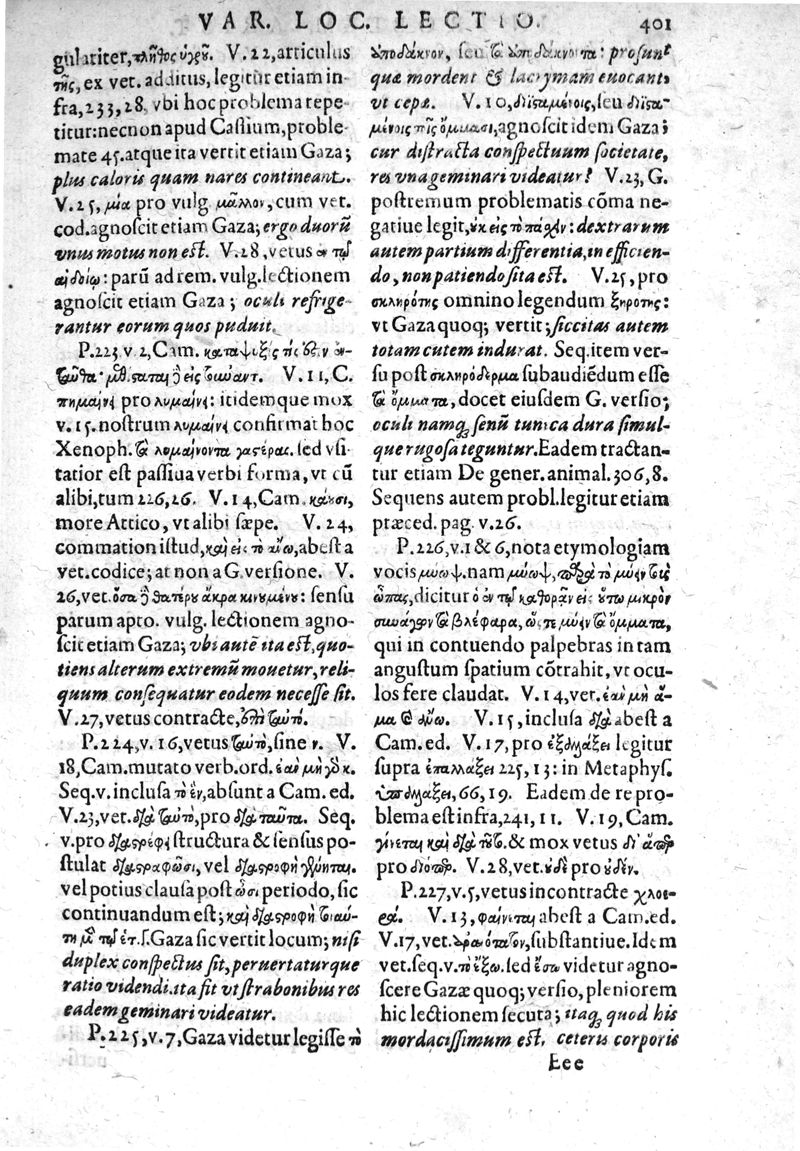 VAR. LOC. LECTIO. 401
gulariter, πλῆθος ὑγροῦ. V. 22, articulus
τῆς, ex vet. additus, legitur etiam in-
fra, 233, 28. vbi hoc problema repe-
titur: necnon apud Cassium, proble-
mate 45. atque ita vertit etiam Gaza;
plus caloris quam nares contineant.
V. 25, μία pro vulg. μᾶλλον, cum vet.
cod. agnoscit etiam Gaza; ergo duorũ
vnus motus non est. V. 28, vetus ἐν τῷ
αἰδοίῳ: parũ ad rem. vulg. lectionem
agnoscit etiam Gaza; oculi refrige-
rantur eorum quos puduit.
P. 223 v. 2, Cam.
V. 11, C.
πημαίνει pro λυμαίνει: itidemque mox
v. 15. nostrum λυμαίνει confirmat hoc
Xenoph. τὰ λυμαίνοντα γαστέρας. sed vsi-
tatior est passiua verbi forma, vt cũ
alibi, tum 226, 26. V. 14, Cam. κάουσι,
more Attico, vt alibi sæpe. V. 24,
commation istud, καὶ εἰς τὸ ἄνω, abest a
vet. codice; at non a G. versione. V.
26, vet. ὅσα ἢ θατέρου ἄκρα κινουμένου: sensu
parum apto. vulg. lectionem agno-
scit etiam Gaza; vbi autẽ ita est, quo-
tiens alterum extremũ mouetur, reli-
quum consequatur eodem necesse sit.
V. 27, vetus contracte, ἐπὶ ταὐτό.
P. 224, v. 16, vetus ταὐτὸ, sine ν. V.
18, Cam. mutato verb. ord. ἐὰν μὴ
Seq. v. inclusa τὸ ἓν, absunt a Cam. ed.
V. 23, vet. διὰ ταὐτὸ, pro διὰ ταῦτα. Seq.
v. pro διαστρέφει structura & sensus po-
stulat διαστραφῶσι, vel διαστροφὴ γένηται.
vel potius clausa post ὦσι periodo, sic
continuandum est; καὶ διαστροφὴ τοιαύ-
τη Gaza sic vertit locum; nisi
duplex conspectus sit, peruertaturque
ratio videndi. ita fit vt strabonibus res
eadem geminari videatur.
P. 225, v. 7, Gaza videtur legisse τὸ
ὑποδάκνον, seu τὰ ὑποδάκνοντα: prosunt
quæ mordent & lacrymam euocant,
vt cepæ. V. 10, διϊσταμένοις, seu διϊστα-
μένοις τοῖς ὄμμασι, agnoscit idem Gaza;
cur distracta conspectuum societate,
res vna geminari videatur? V. 23, G.
postremum problematis cõma ne-
gatiue legit, οὐκ εἰς τὸ παθεῖν: dextrarum
autem partium differentia, in efficien-
do, non patiendo sita est. V. 25, pro
σκληρότης omnino legendum ξηρότης:
vt Gaza quoq; vertit; siccitas autem
totam cutem indurat. Seq. item ver-
su post σκληρόδερμα subaudiẽdum esse
τὰ ὄμματα, docet eiusdem G. versio;
oculi namq; senũ tunica dura simul-
que rugosa teguntur. Eadem tractan-
tur etiam De gener. animal. 306, 8.
Sequens autem probl. legitur etiam
præced. pag. v. 26.
P. 226, v. 1 & 6, nota etymologiam
vocis μύωψ. nam μύωψ, παρὰ τὸ μύειν τοὺς
ὦπας, dicitur ὁ ἐν τῷ καθορᾶν εἰς οὕτω μικρὸν
συνάγων τὰ βλέφαρα, ὥστε μύειν τὰ ὄμματα,
qui in contuendo palpebras in tam
angustum spatium cõtrahit, vt ocu-
los fere claudat. V. 14, vet. ἐὰν μὴ ἅ-
μα
V. 15, inclusa διὰ abest a
Cam. ed. V. 17, pro ἐξαλλάξει legitur
supra ἐπαλλάξει 225, 13: in Metaphys.
ὑπαλλάξει, 66, 19. Eadem de re pro-
blema est infra, 241, 11. V. 19, Cam.
γίνεται καὶ διὰ τοῦτο. & mox vetus δι' ἅπερ
pro διόπερ. V. 28, vet. οὐδὲ pro οὐδέν.
P. 227, v. 5, vetus incontracte χλοε-
ρά. V. 13, φαίνεται abest a Cam. ed.
V. 17, vet. substantiue. Idem
vet. seq. v. τὸ ἔξω. sed ἔσω videtur agno-
scere Gazæ quoq; versio, pleniorem
hic lectionem secuta; itaq; quod his
mordacissimum est, ceteris corporis
Eee